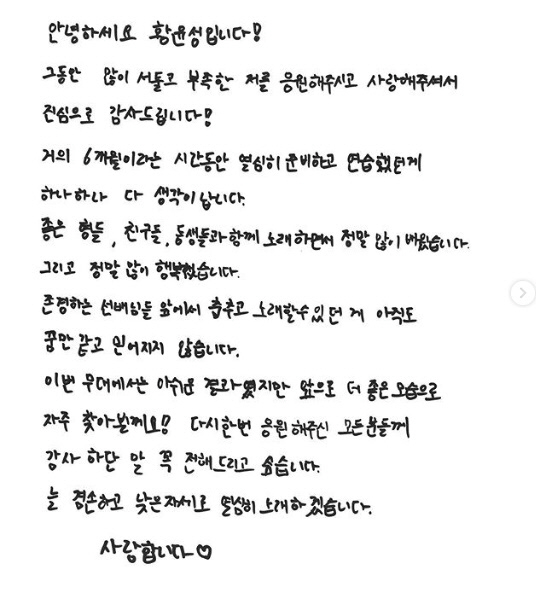 안녕하세요 황윤성입니다!
그동안 많이 서툴고 부족한 저를 응원해주시고 사랑해주셔서
진심으로 감사드립니다!
거의 6개월이라는 시간동안 열심히 준비하고 연습했던게
하나하나 다 생각이납니다.
좋은 형들, 친구들, 동생들과 함께 노래하면서 정말 많이 배웠습니다.
그리고 정말 많이 행복했습니다.
존경하는 선배님들 앞에서 춤추고 노래할수 있던 게 아직도
꿈만 같고 믿어지지 않습니다.
이번 무대에서는 아쉬운 결과였지만 앞으로 더 좋은 모습으로
자주 찾아볼께요! 다시한번 응원해주신 모든분들께
감사 하단 말 꼭 전해드리고 싶습니다.
늘 겸손하고 낮은자세로 열심히 노래하겠습니다.
사랑합니다♡